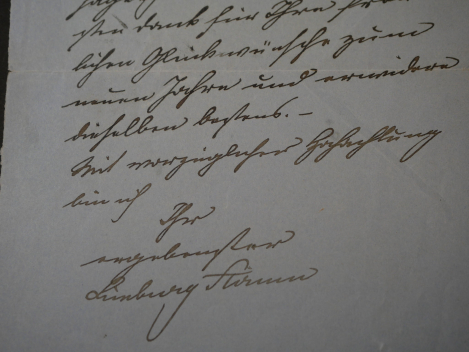 sten Dank für Ihre freund-
lichen Glückwünsche zum
neuen Jahre und erwidere
dieselben bestens. –
Mit vorzüglicher Hochachtung
bin ich
Ihr
ergebenster